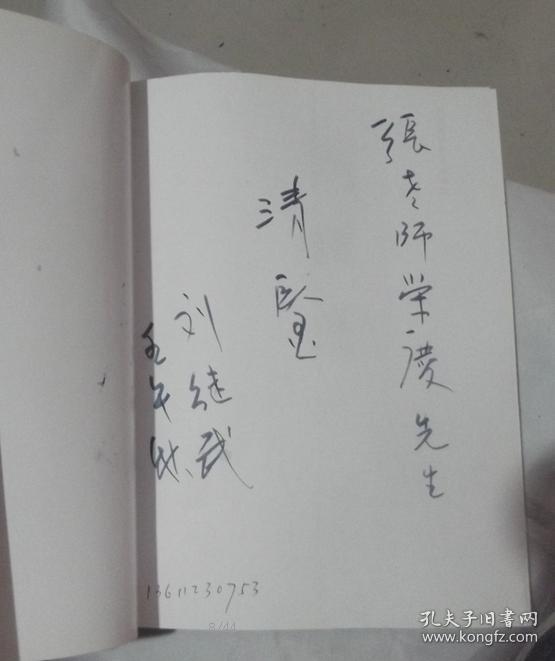 張老师荣慶先生
清鉴
刘继武
壬午秋
13611230753
8/44
孔夫子旧书网
www.kongfz.com